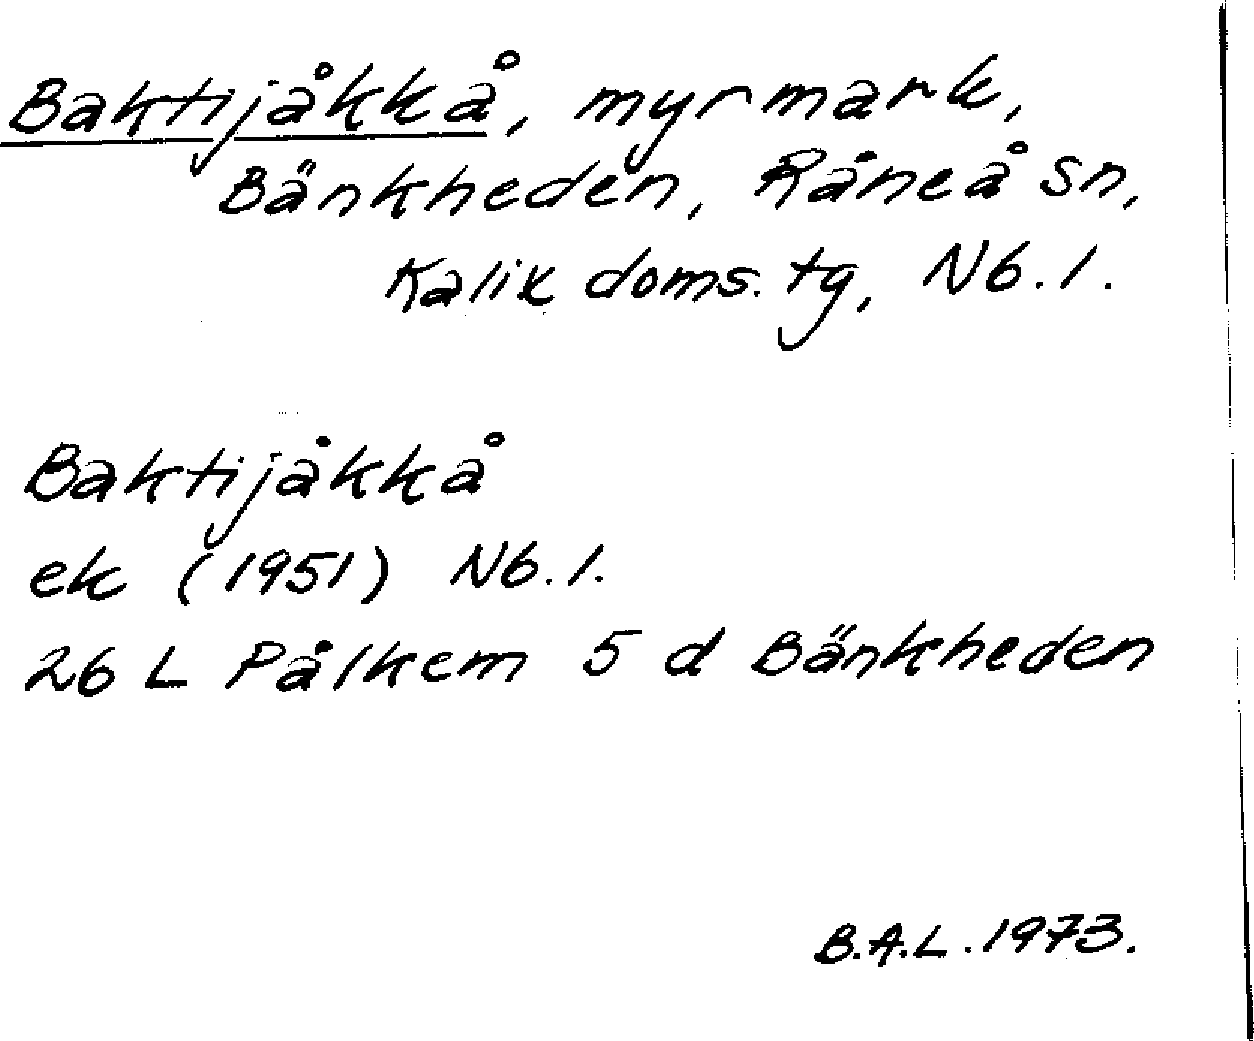 Baktijåkkå, myrmark,
Bänkheden, Råneå sn,
Kalix doms. tg, Nb. l.
Baktijåkkå
ek (1951) Nb. l.
26 L Pålkem 5 d Bänkheden
B.A.L. 1973.